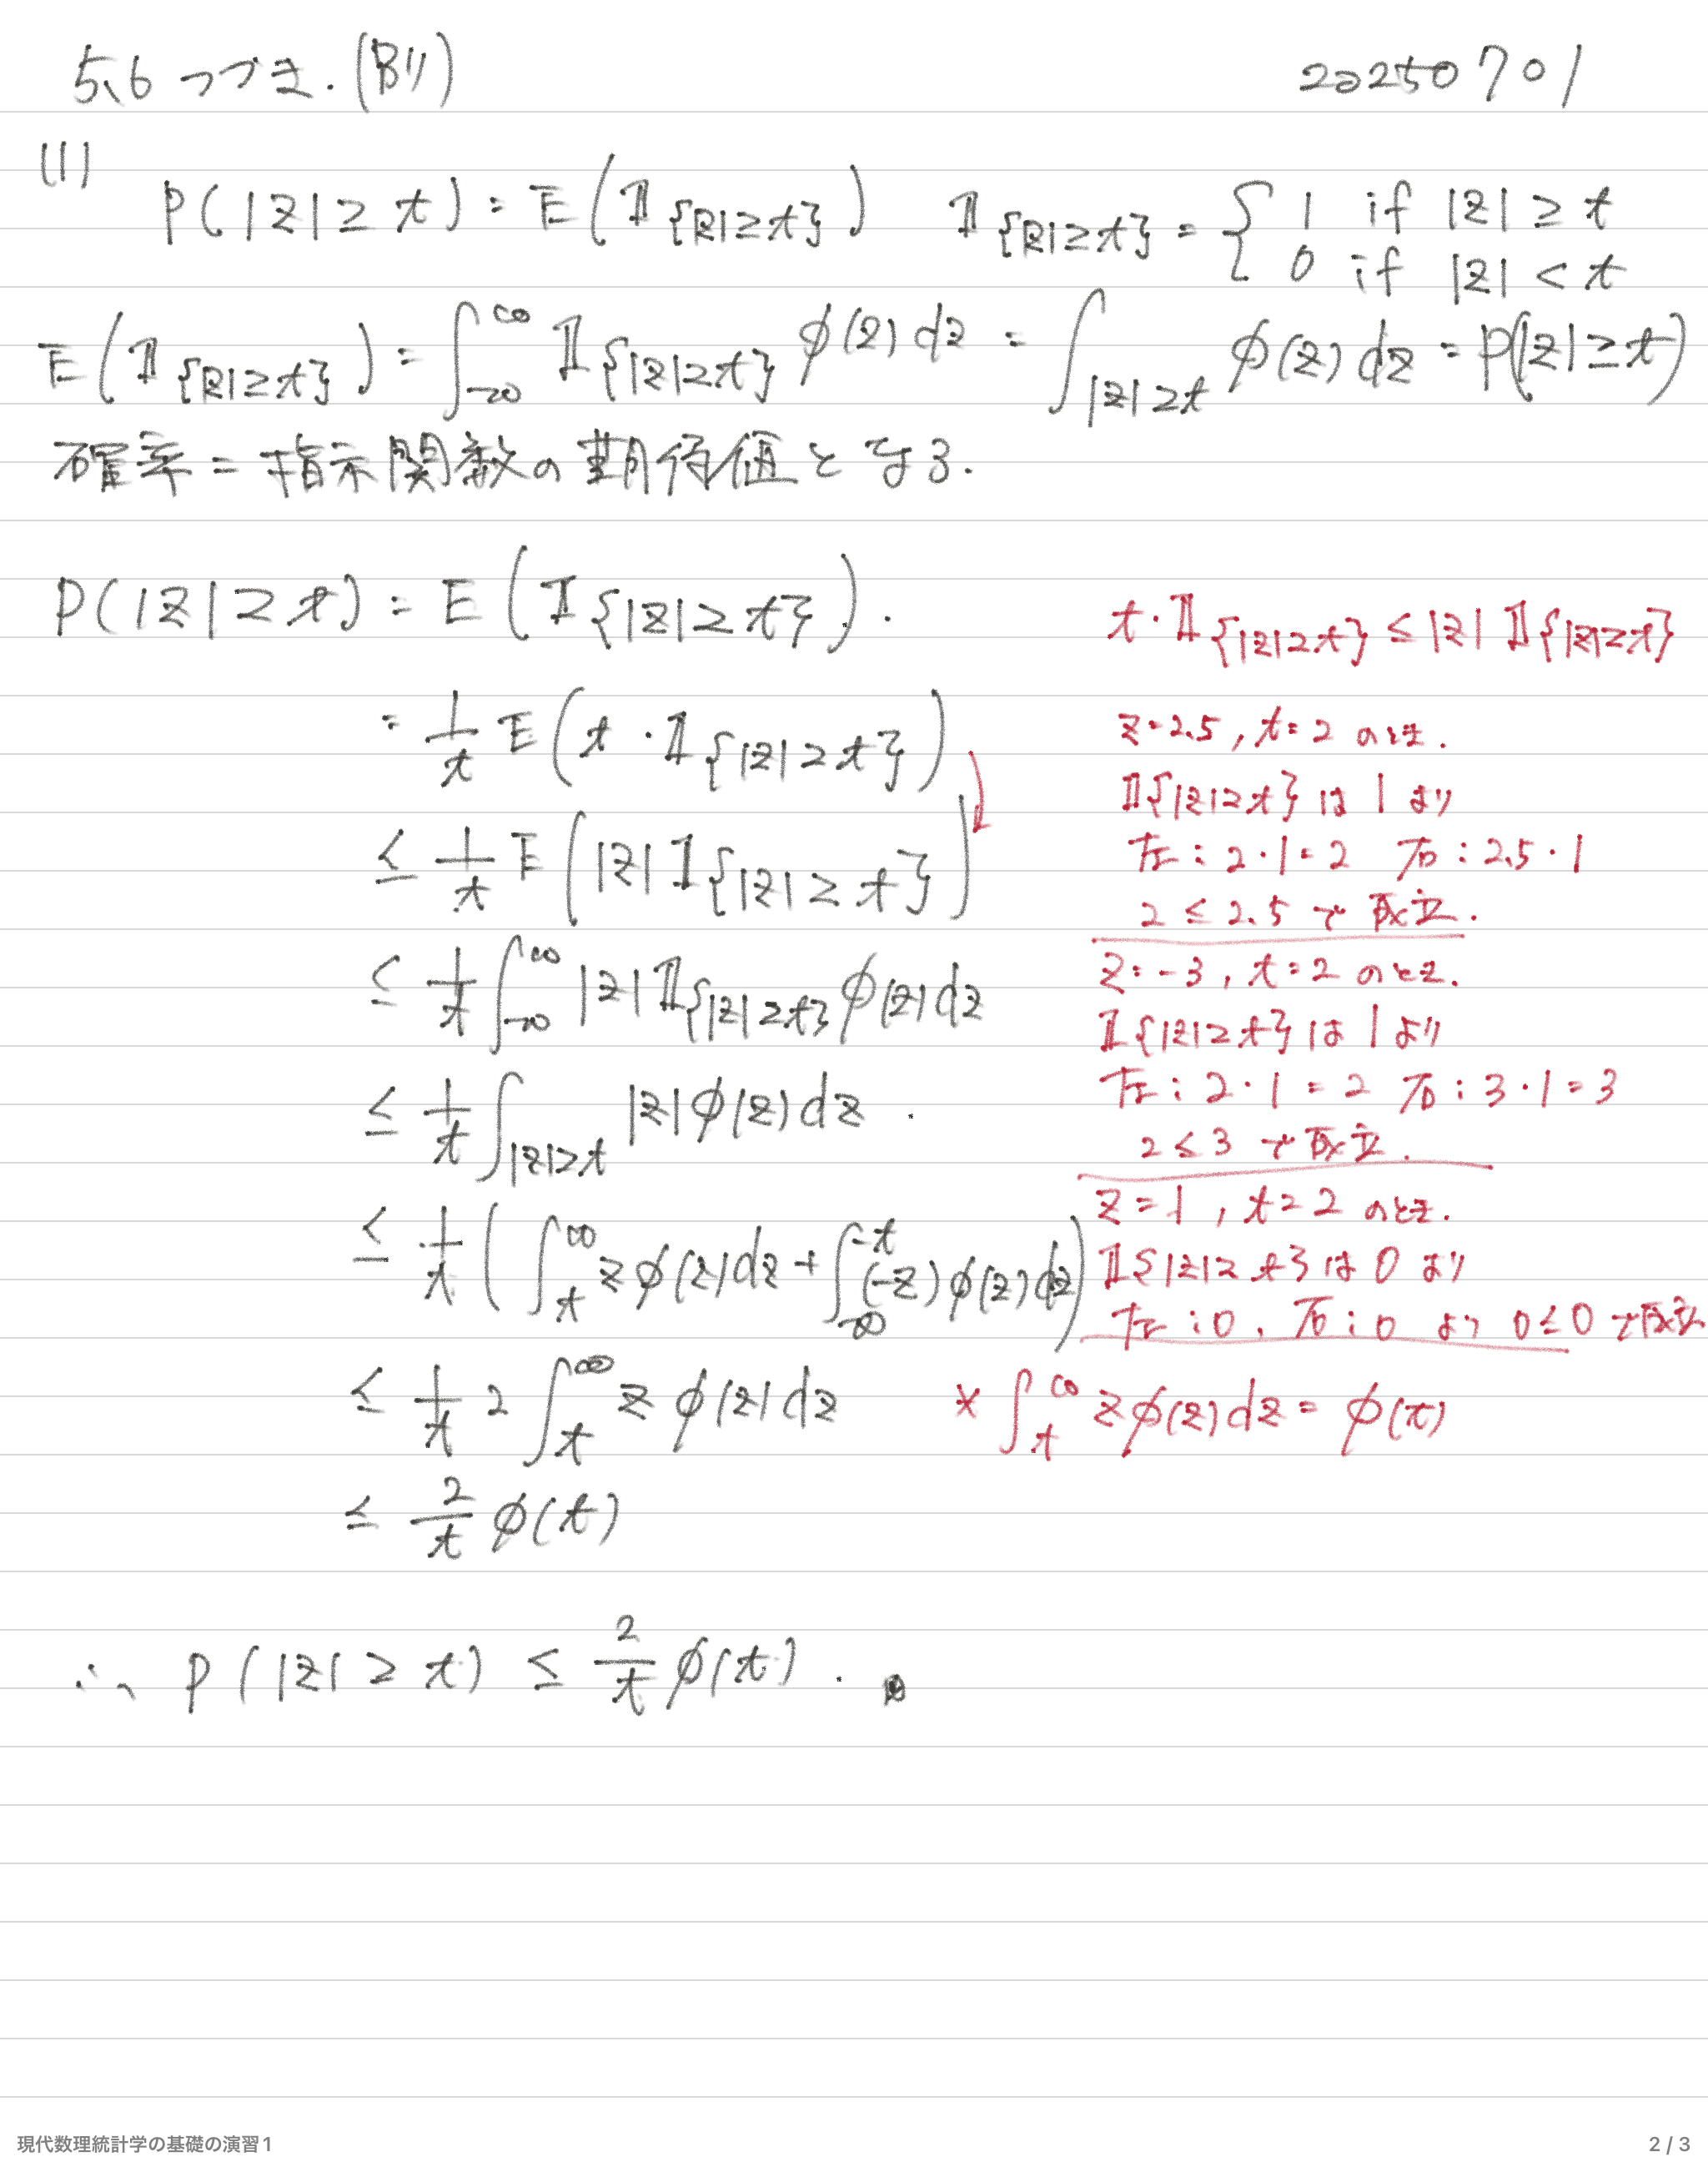 5.6 つづき. (別) 20250701
(1)
P(|z| ≥ t) = E(𝟙{|z|≥t}) 𝟙{|z|≥t} = { 1 if |z| ≥ t
0 if |z| < t
E(𝟙{|z|≥t}) = ∫_{-∞}^{∞} 𝟙{|z|≥t} φ(z) dz = ∫_{|z|≥t} φ(z) dz = P(|z| ≥ t)
確率 = 指示関数の期待値となる.
P(|z| ≥ t) = E(𝟙{|z|≥t}).
= 1/t E(t · 𝟙{|z|≥t})
≤ 1/t E(|z| 𝟙{|z|≥t})
≤ 1/t ∫_{-∞}^{∞} |z| 𝟙{|z|≥t} φ(z) dz
≤ 1/t ∫_{|z|≥t} |z| φ(z) dz.
≤ 1/t ( ∫_{t}^{∞} z φ(z) dz + ∫_{-∞}^{-t} (-z) φ(z) dz )
≤ 1/t 2 ∫_{t}^{∞} z φ(z) dz
≤ 2/t φ(t)
∴ P(|z| ≥ t) ≤ 2/t φ(t).
t · 𝟙{|z|≥t} ≤ |z| 𝟙{|z|≥t}
z=2.5, t=2 のとき.
𝟙{|z|≥t} は 1 より
左: 2·1=2 右: 2.5·1
2 ≤ 2.5 で成立.
z=-3, t=2 のとき.
𝟙{|z|≥t} は 1 より
左: 2·1=2 右: 3·1=3
2 ≤ 3 で成立.
z=1, t=2 のとき.
𝟙{|z|≥t} は 0 より
左: 0, 右: 0 より 0≤0 で成立
* ∫_{t}^{∞} z φ(z) dz = φ(t)
現代数理統計学の基礎の演習1 2 / 3